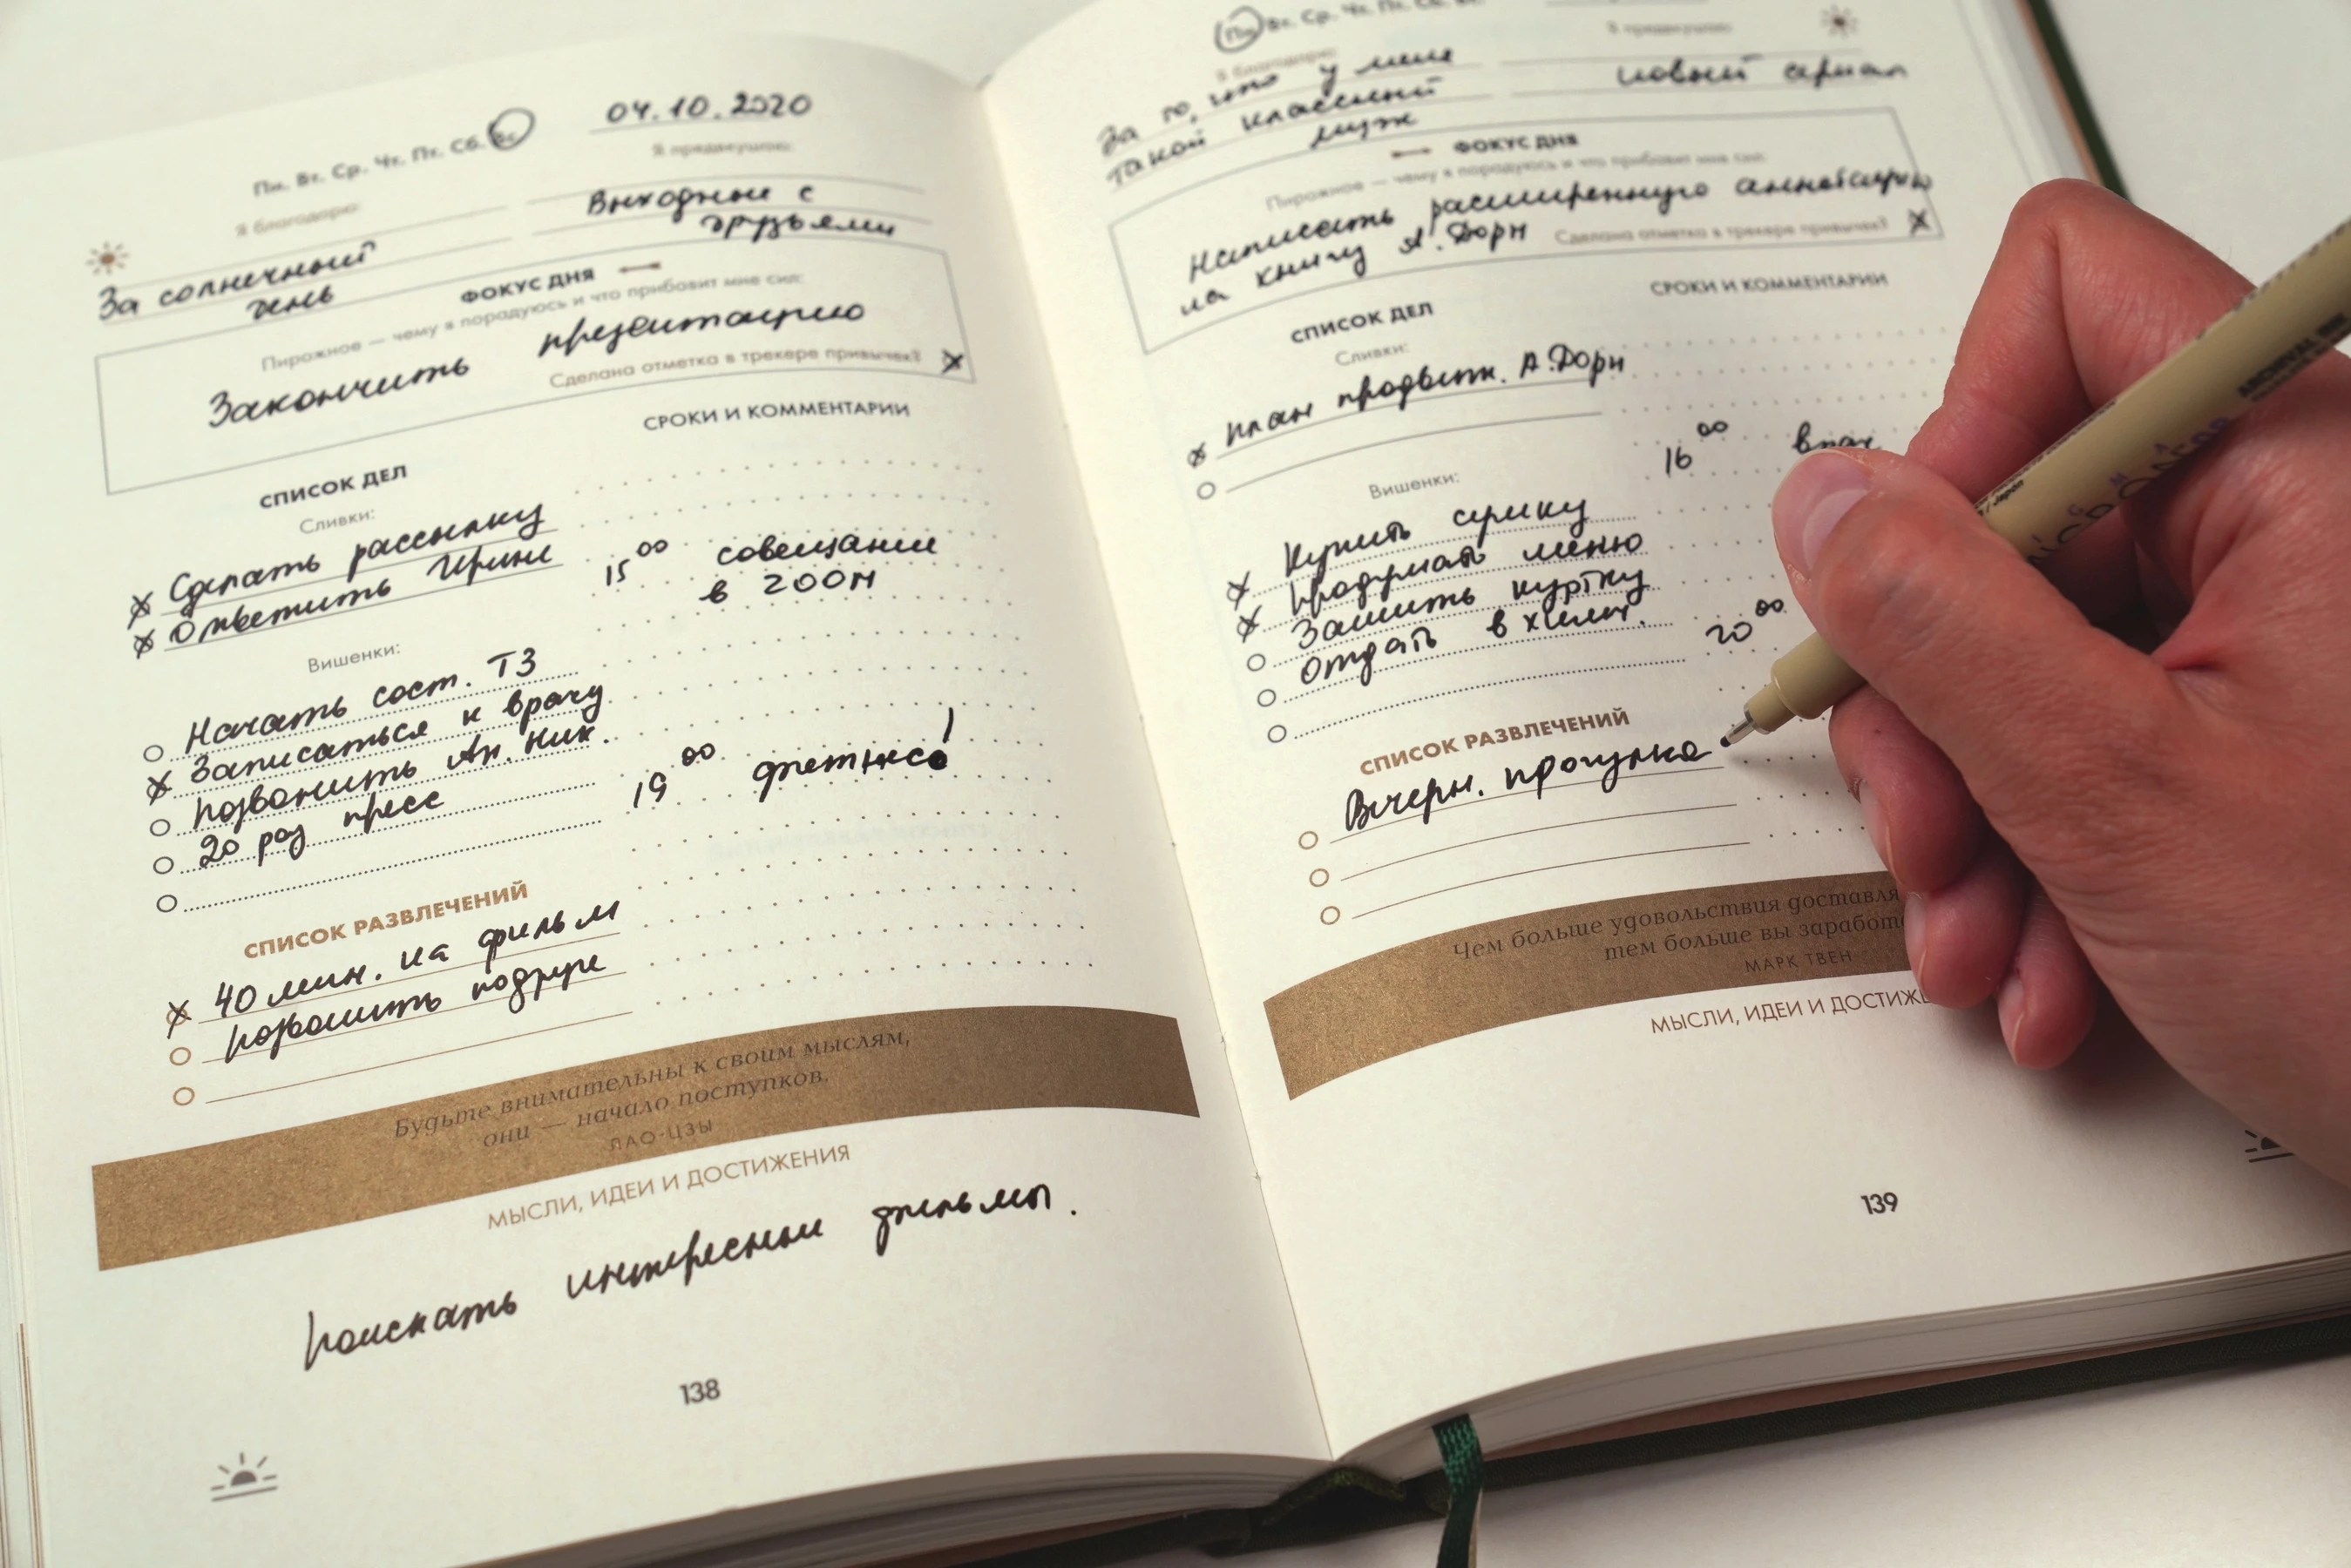 Пн. Вт. Ср. Чт. Пт. Сб. Вс.
04.10.2020
Я благодарю:
Я предвкушаю:
За солнечный
день
Выходные с
друзьями
ФОКУС ДНЯ
Пирожное — чему я порадуюсь и что прибавит мне сил:
Закончить презентацию
Сделана отметка в трекере привычек?
СПИСОК ДЕЛ
СРОКИ И КОММЕНТАРИИ
Сливки:
Сделать рассылку
Ответить Ирине
15 00 совещание
в ZOOM
Вишенки:
Начать сост. ТЗ
Записаться к врачу
Позвонить Ан. Ник.
20 раз пресс
19 00 фитнес!
СПИСОК РАЗВЛЕЧЕНИЙ
40 мин. на фильм
Позвонить подруге
Будьте внимательны к своим мыслям,
они — начало поступков.
ЛАО-ЦЗЫ
МЫСЛИ, ИДЕИ И ДОСТИЖЕНИЯ
Поискать интересные фильмы.
138
Пн. Вт. Ср. Чт. Пт. Сб. Вс.
Я благодарю:
Я предвкушаю:
За то, что у меня
такой классный
муж
новый сериал
ФОКУС ДНЯ
Пирожное — чему я порадуюсь и что прибавит мне сил:
Написать расширенную аннотацию
на книгу А. Дорн
Сделана отметка в трекере привычек?
СПИСОК ДЕЛ
СРОКИ И КОММЕНТАРИИ
Сливки:
План продвиж. А. Дорн
Вишенки:
16 00 врач
Купить
Продумать меню
Зашить куртку
Отдать в химч.
20 00
СПИСОК РАЗВЛЕЧЕНИЙ
Вечерн. прогулка
Чем больше удовольствия доставля
тем больше вы заработ
МАРК ТВЕН
МЫСЛИ, ИДЕИ И ДОСТИЖЕ
139